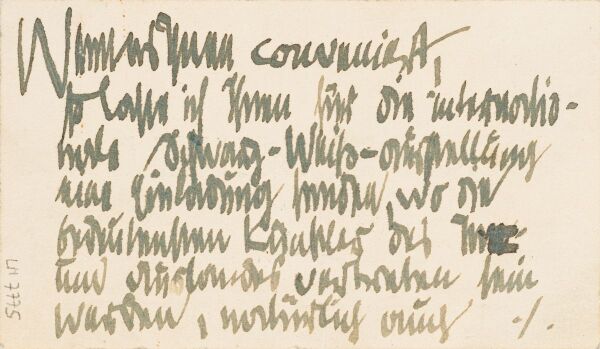 Wenn es Ihnen conveniert,
so lasse ich Ihnen für die internatio-
nale Schwarz-Weiß-Ausstellung
eine Einladung senden, wo die
bedeutensten Künstler des In-
und Auslandes vertreten sein
werden, natürlich auch ./.